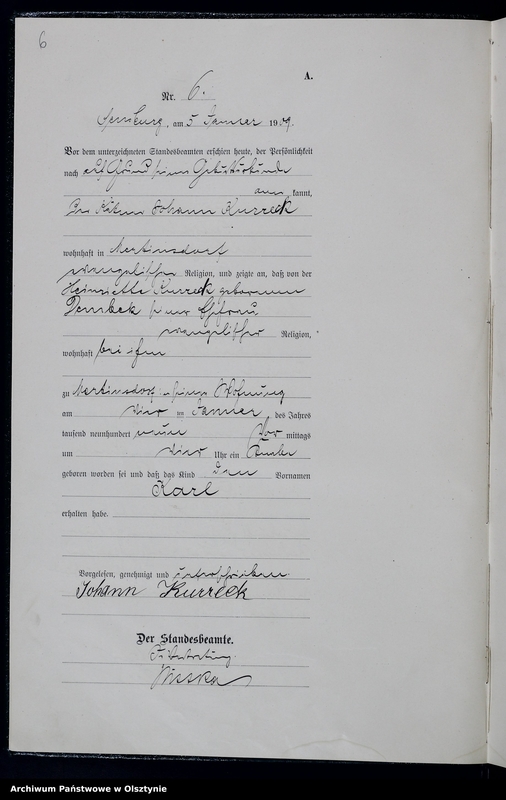 6
A.
Nr. 6.
am 5 Januar 1909.
Vor dem unterzeichneten Standesbeamten erschien heute, der Persönlichkeit
nach auf Grund seiner Geburtsurkunde
aner kannt,
Der Kätner Johann Kurreck
wohnhaft in Martinsdorf
evangelischer Religion, und zeigte an, daß von der
Henriette Kurreck geborenen
Dembek seiner Ehefrau
evangelischer Religion,
wohnhaft bei ihm
zu Martinsdorf in seiner Wohnung
am vier ten Januar des Jahres
tausend neunhundert neun Vor mittags
um vier Uhr ein Knabe
geboren worden sei und daß das Kind den Vornamen
Karl
erhalten habe.
Vorgelesen, genehmigt und unterschrieben.
Johann Kurreck
Der Standesbeamte.
In Vertretung.
Archiwum Państwowe w Olsztynie